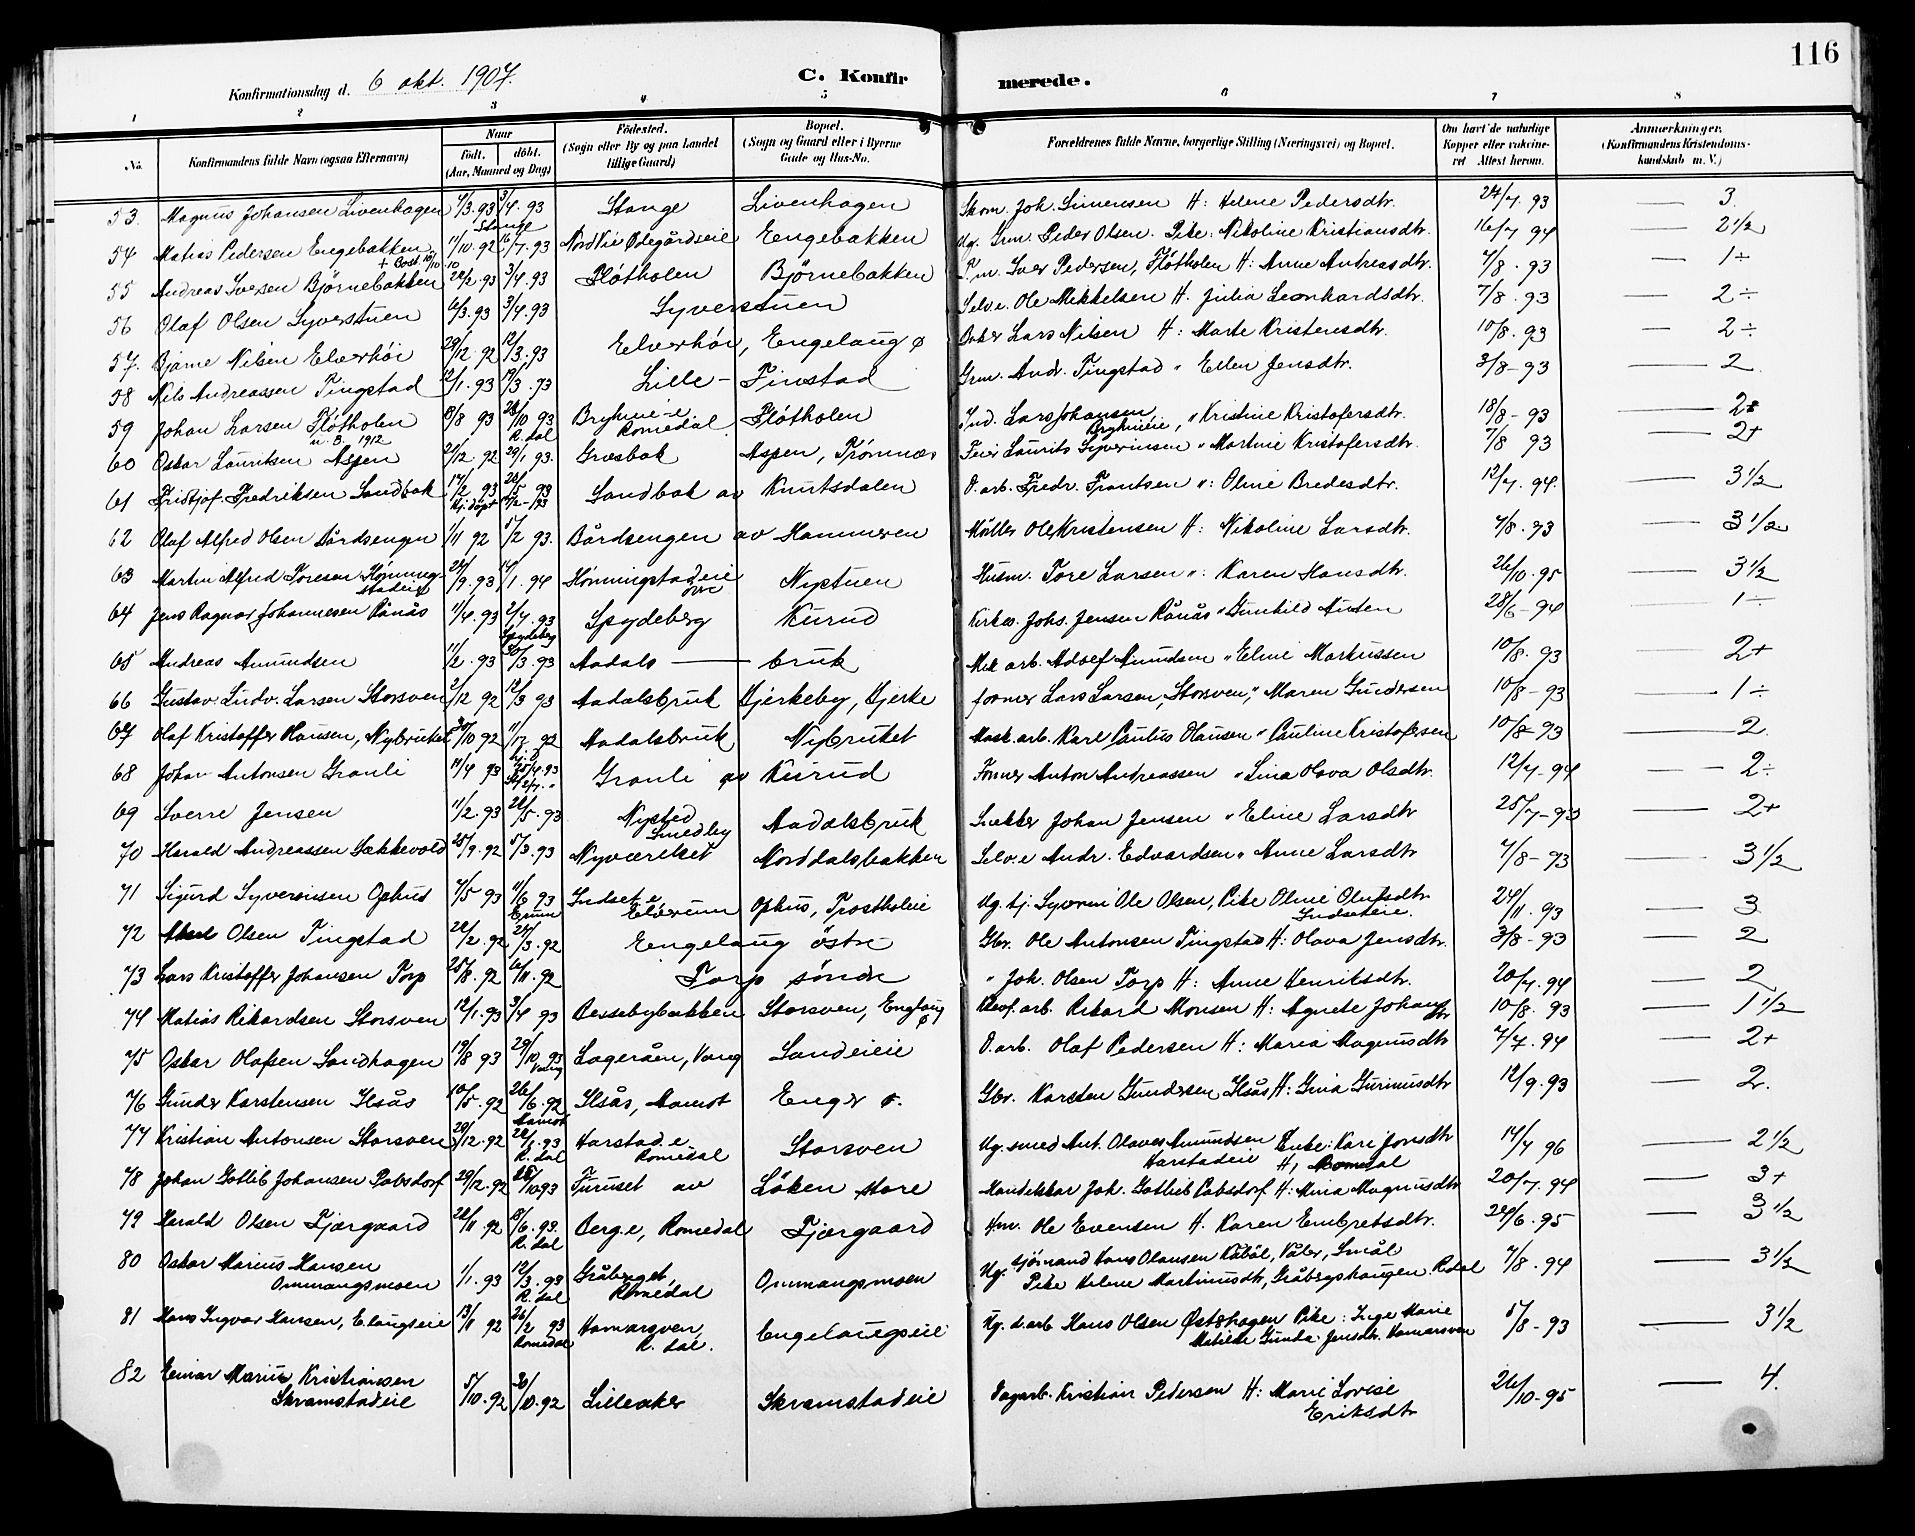 116
Konfirmationsdag d. 6 okt. 1907. C. Konfirmerede.
1 2 3 4 5 6 7 8
No. Konfirmandens fulde Navn (ogsaa Efternavn) Naar født. døbt. (Aar, Maaned og Dag) Fødested. (Sogn eller By og paa Landet tillige Gaard) Bopæl. (Sogn og Gaard eller i Byerne Gade og Hus-No. Forældrenes fulde Navne, borgerlige Stilling (Næringsvei) og Bopæl. Om havt de naturlige Kopper eller vakcineret Attest herom. Anmærkninger. (Konfirmandens Kristendomskundskab m. V.)
53. Magnus Johansen Livenhagen 3/4.93 Stange Stange Livenhagen Skom. Joh. Simensen H: Helene Pedersdtr. 24/7.93 3.
54 Matias Pedersen Engebakken 11/10.92 16/7.93 Engebakken Ug. Grm. Peder Olsen. Pike: Nikoline Kristiansdtr. 16/7 94 2 1/2
55 Andreas Iversen Bjørnebakken 3/4.93 Fløtholen Bjørnebakken Iver Pedersen, Fløtholen H: Anne Andreasdtr. 7/8.93 1÷
56 Olaf Olsen Syverstuen 6/3.93 3/4.93 Syverstuen Selv.e. Ole Mikkelsen H. Julia Leonhardsdtr. 7/8.93 2÷
57. Bjarne Nilsen Elverhøi 29/12 92 12/3.93 Elverhøi, Engelaug ø Baker Lars Nilsen H: Marte Kristensdtr. 10/8.93 2÷
58 Nils Andreassen Tingstad 12/1.93 19/3.93 Lille-Finstad Grm. Andr. Tingstad " Ellen Jensdtr. 3/8-93 2
59 Johan Larsen Fløtholen 8/8 93 28/10 93 R.dal Romedal Fløtholen Ind. Lars Johansen, " Kristine Kristofersdtr. 18/8-93
60 Oskar Lauritsen Aspen u. B. 1912 21/12.92 29/1 93. Græsbak Aspen, Trønnæs Feier Laurits Syverinsen " Martine Kristofersdtr. 7/8 93 2+
61 Fristjof Fredriksen Sandbak 14/2 93 Hj. døpt 28/5 93 Sandbak av Knutsdalen D.arb. Fredr. Frantsen ": Oline Bredesdtr. 12/7.94. 3 1/2
62 Olaf Alfred Olsen Bårdsengen 1/11 92 5/2 93. Bårdsengen av Hammeren Møller Ole Kristensen H: Nikoline Larsdtr. 7/8.93 3 1/2
63 Martin Alfred Toresen Hønningstadeie 24/9.93 14/1.94 Hønningstadeie Nystuen Husm. Tore Larsen ": Karen Hansdtr. 26/10.95 3 1/2
64 Jens Ragnar Johannesen Rånås 11/4.93 2/7.93 Spydeberg Spydeberg Kurud Kirkes. Johs. Jensen Rånås " Gunhild Austen 28/6-94 1÷
65 Andreas Amundsen 11/2.93 30/3.93 Aadalsbruk Mek arb. Adolf Amundsen " Eline Markussen 10/8.93 2+
66 Gustav Ludv. Larsen Storsven 2/12 92 12/3 93 Aadalsbruk Hjerkeby, Hjerke former Lars Larsen, Storsven, " Maren Gundersen 10/8-93 1÷
67 Olaf Kristoffer Hansen, Nybruket 30/10 92 11/12. 92 Aadalsbruk Nybruket Mask.arb. Karl Paulus Hansen " Pauline Kristofersen 10/8-93 2.
68 Johan Antonsen Granli 14/4 93 25/4.93 Granli av Kurud Former Anton Andreassen " Lina Olava Olsdtr. 12/7-94 2÷
69 Sverre Jensen 11/2.93 28/5.93 Nysted Smedby Aadalsbruk Snekker Johan Jensen " Eline Larsdtr 25/7-93 2+
70 Harald Andreassen Sækkevold 25/9.92 5/3.93 Nyværelset Norddalsbakken Selv.e Andr. Edvardsen " Anne Larsdtr 7/8-93 3 1/2
71 Sigurd Syverinsen Ophus 7/5 93 11/6 93 Indset e. Elverum Ophus, Trostholeie Ug. tj. Syverin Ole Olsen, Pike Oline Olufsdtr Indseteie. 24/11.93 3
72 Olsen Tingstad 22/2.92 27/3.92 Engelaug østre Gbr. Ole Antonsen Tingstad H: Olava Jensdtr. 3/8-93 2
73 Lars Kristoffer Johansen Torp 25/8.92 6/11.92 Torp søndre " Joh. Olsen Torp H: Anne Henriksdtr. 20/7.94 2
74 Matias Rikardsen Storsven 12/1.93 3/4 93 Bessebybakken Storsven, Englaug ø Rikard Monsen H: Agnete Johansdtr 10/8.93 1 1/2
75 Oskar Olafsen Sandhagen 19/8 93 29/10.93 Vang Lageråen, Vang Sandeieie D.arb. Olaf Pedersen H: Maria Magnusdtr 7/7.94 2+
76 Gunder Karstensen Ilsås 10/5.92 26/6.92 Aamot Ilsås, Aamot Enger ø. Gbr. Karsten Gundersen Ilsås H: Gina Gurinusdtr 12/9.93 2.
77 Kristian Antonsen Storsveen 29/12.92 22/1.93 R.dal Harstad.e. Romedal Storsven Ug. smed Ant. Olaves Amundsen Enke: Kari Jonsdtr Harstadeie H, Romedal 14/7 96 2 1/2
78 Johan Gotlib Johansen Pabsdorf 29/12.92 10 93 Furuset av Løken store Handelskar Joh. Gotlieb Pabsdorf H: Mina Magnusdtr 20/7.94 3+
79 Harald Olsen Fjærgaard 28/11 92 18/6.93. R.dal Berg.e, Romedal Fjærgaard Hm. Ole Evensen H. Karen Embretsdtr. 24/6.95 3 1/2
80 Oskar Marius Hansen Ommangsmoen 1/1.93 12/3.93 R.dal Gråberget, Romedal Ommangsmoen Ug. sjømand Hans Olausen Kåbøl, Våler, Smål Pike Helene Martinusdtr, Gråbergshaugen R.dal 7/8.94 3 1/2
81 Hans Ingvar Hansen, Elaugseie 13/11 92 26/2 93 Romedal Hamarsven, R.dal. Engelaugseie Ug. d.arb Hans Olsen Østshagen Pike: Inge Marie Matilde Gunda Jensdtr. Hamarsven 5/8-93 3 1/2
82 Einar Marius Kristiansen Skramstadeie 5/10.92 30/10.92 Lilleaker Skramstadeie Dagarb. Kristian Pedersen H: Marie Lovise Eriksdtr 26/10-95 4.